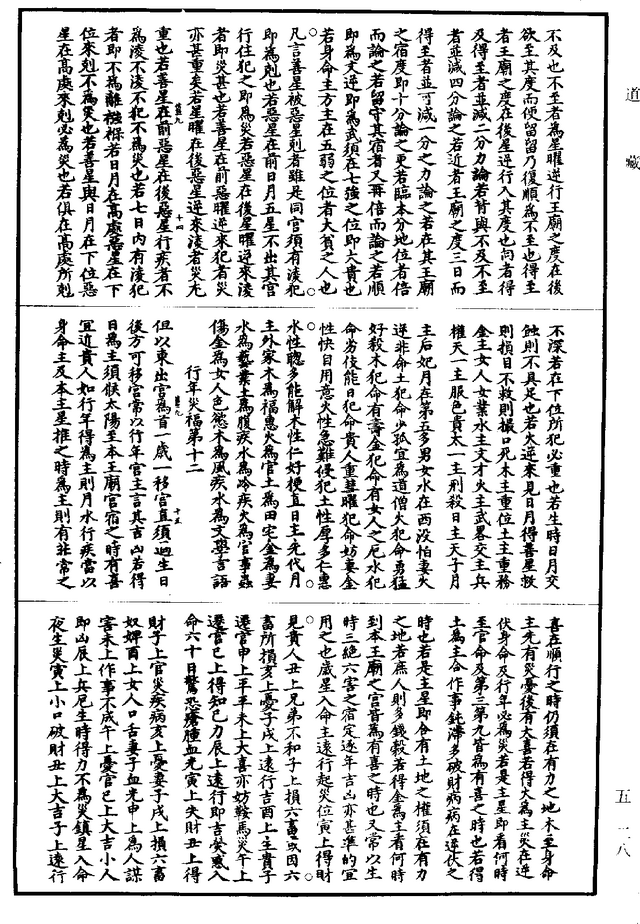 道藏
不及也不至者為星曜逆行王廟之度在後
欲至其度而便留留乃復順為不至也得至
者王廟之度在後星逆行入其度也向者得
及得至者並減二分力論若背與不及不至
者並減四分論之若近者王廟之度三日而
得至者並可減一分之力論之若在其王廟
之宿度即十分論之更若臨本分地位者倍
而論之若留守其宿者又再倍而論之若順
即為文逆即為武須在七強之位即大貴也
若身命主方主在五弱之位者大貧之人也
凡言善星被惡星剋者雖是同宮須有淩犯
即為剋也若惡星在前日月五星不出其宮
行住犯之即為災若惡星在後星曜逆來淩
者即災甚也若善星在前惡曜逆來犯者災
亦甚重矣若星曜在後惡星逆來淩者災尤
十四
重也若善星在前惡星在後惡星行疾者不
為淩不淩不犯不為災也若七日內有淩犯
者即不為離若日月在高處惡星在下
位來剋不為災也若善星與日月在下位惡
星在高處來剋必為災也若俱在高處所剋
不深若在下位所犯必重也若生時日月交
蝕則不具足也若火逆來見日月得善星救
則損目不救則撮口死木主重位土主重務
金主女人女業水主文才火主武略交主兵
權天一主服色貴太一主刑殺日主天子月
主后妃月在第五多男女水在西沒怕妻火
逆非命土犯命少孤宜為道僧火犯命勇猛
好殺木犯命有壽金犯命有女人之厄水犯
命劣伎能日犯命貴人重彗曜犯命妨妻金
性快目用意火性急難侵犯土性厚多仁惠
水性聰多能解木性仁好梗直日主先代月
主外家木為福惠火為官土為田宅金為妻
水為藝業土為腹疾水為冷疾火為官事蟲
傷金為女人色慾木為風疾水為文學言語
行年災福第十二
十五
但以東出宮為首一歲一移宮直須迴生日
後方可移宮常以行年宮主言其吉凶若得
日為主須候太陽至本王廟宮宿之時有喜
宜近貴人如行年得為主則月水行疾當以
身命主及本主星推之時為主則有非常之
喜在順行之時仍須在有力之地木至身命
主先有災憂後有大喜若得火為主災在逆
伏身命及行年必為災若是主星即看何時
至官命及第二第九皆為有喜之時也若得
土為主合作事鈍滯多破財病病在逆伏之
時也若是主星即合有土地之權須在有力
之地若庶人則多錢穀若得金為主看何時
到本王廟之宮皆為有喜之時也又常以生
時三絕六害之宿定逐年吉凶亦甚準的宜
用之也歲星入命主遠行起災位寅上得財
見貴人丑上兄弟不和子上損六畜或因六
畜所損亥上憂子戌上遠行吉酉上主貴子
遷官申上平平未上大喜亦妨鞍馬災午上
遷官巳上得知己力辰上遠行即吉熒惑入
命六十日驚恐瘡腫血光寅上失財丑上得
財子上官災疾病亥上憂妻子戌上損六畜
奴婢酉上女人口舌妻子血光申上為人謀
害未上作事不成午上憂官巳上大吉小人
即凶辰上兵厄生時得力不為災鎮星入命
夜生災寅上小口破財丑上大吉子上遠行
五 二八